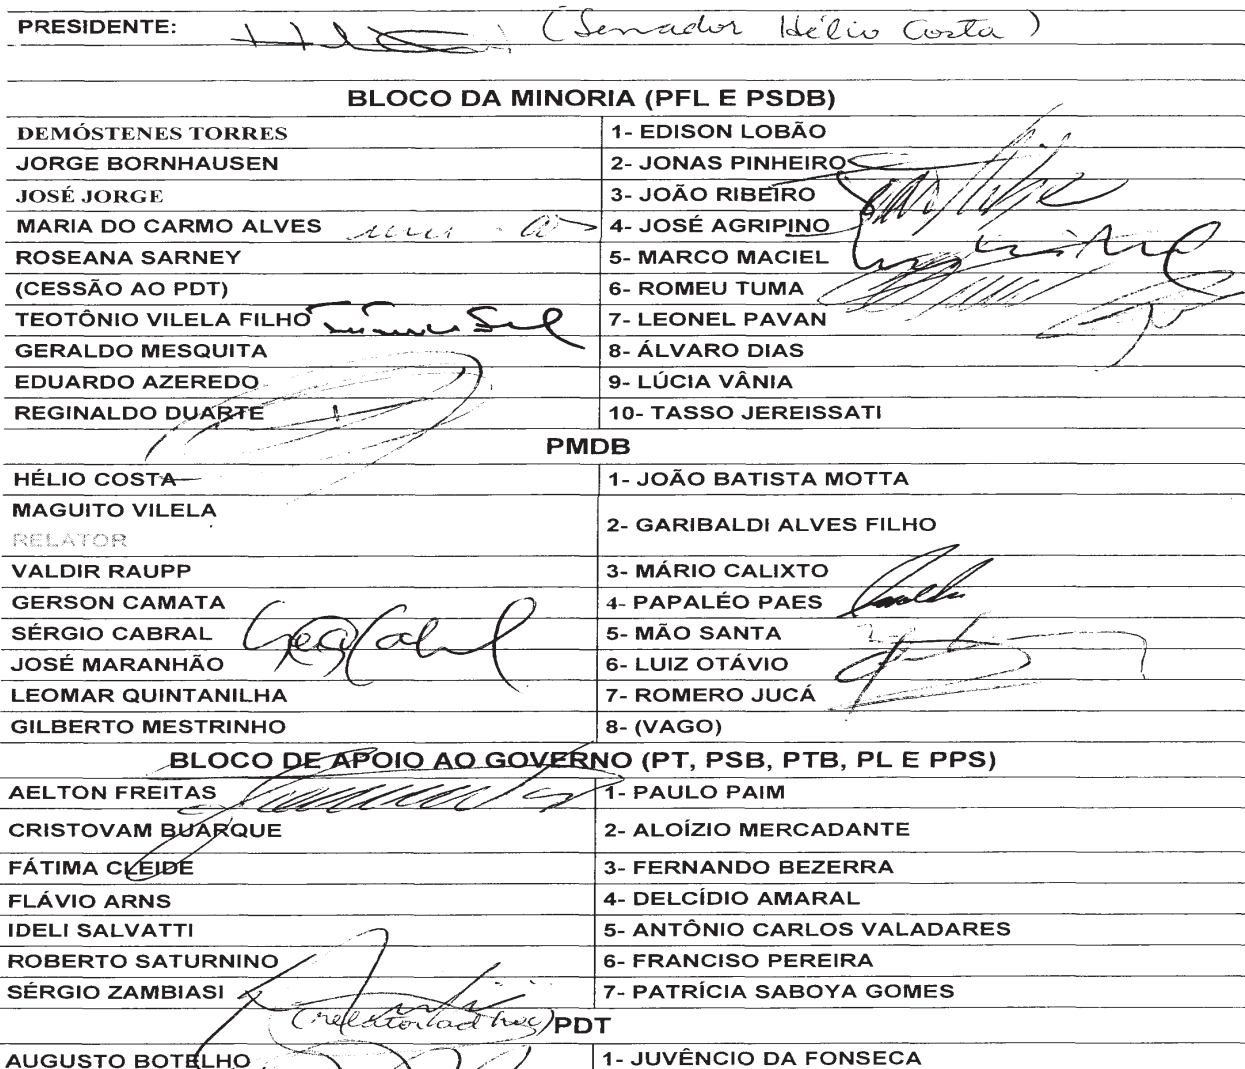 PRESIDENTE: (Senador Hélio Costa)
BLOCO DA MINORIA (PFL E PSDB)
DEMÓSTENES TORRES 1- EDISON LOBÃO
JORGE BORNHAUSEN 2- JONAS PINHEIRO
JOSÉ JORGE 3- JOÃO RIBEIRO
MARIA DO CARMO ALVES 4- JOSÉ AGRIPINO
ROSEANA SARNEY 5- MARCO MACIEL
(CESSÃO AO PDT) 6- ROMEU TUMA
TEOTÔNIO VILELA FILHO 7- LEONEL PAVAN
GERALDO MESQUITA 8- ÁLVARO DIAS
EDUARDO AZEREDO 9- LÚCIA VÂNIA
REGINALDO DUARTE 10- TASSO JEREISSATI
PMDB
HÉLIO COSTA 1- JOÃO BATISTA MOTTA
MAGUITO VILELA 2- GARIBALDI ALVES FILHO
RELATOR
VALDIR RAUPP 3- MÁRIO CALIXTO
GERSON CAMATA 4- PAPALÉO PAES
SÉRGIO CABRAL 5- MÃO SANTA
JOSÉ MARANHÃO 6- LUIZ OTÁVIO
LEOMAR QUINTANILHA 7- ROMERO JUCÁ
GILBERTO MESTRINHO 8- (VAGO)
BLOCO DE APOIO AO GOVERNO (PT, PSB, PTB, PL E PPS)
AELTON FREITAS 1- PAULO PAIM
CRISTOVAM BUARQUE 2- ALOÍZIO MERCADANTE
FÁTIMA CLEIDE 3- FERNANDO BEZERRA
FLÁVIO ARNS 4- DELCÍDIO AMARAL
IDELI SALVATTI 5- ANTÔNIO CARLOS VALADARES
ROBERTO SATURNINO 6- FRANCISO PEREIRA
SÉRGIO ZAMBIASI 7- PATRÍCIA SABOYA GOMES
(relator ad hoc) PDT
AUGUSTO BOTELHO 1- JUVÊNCIO DA FONSECA